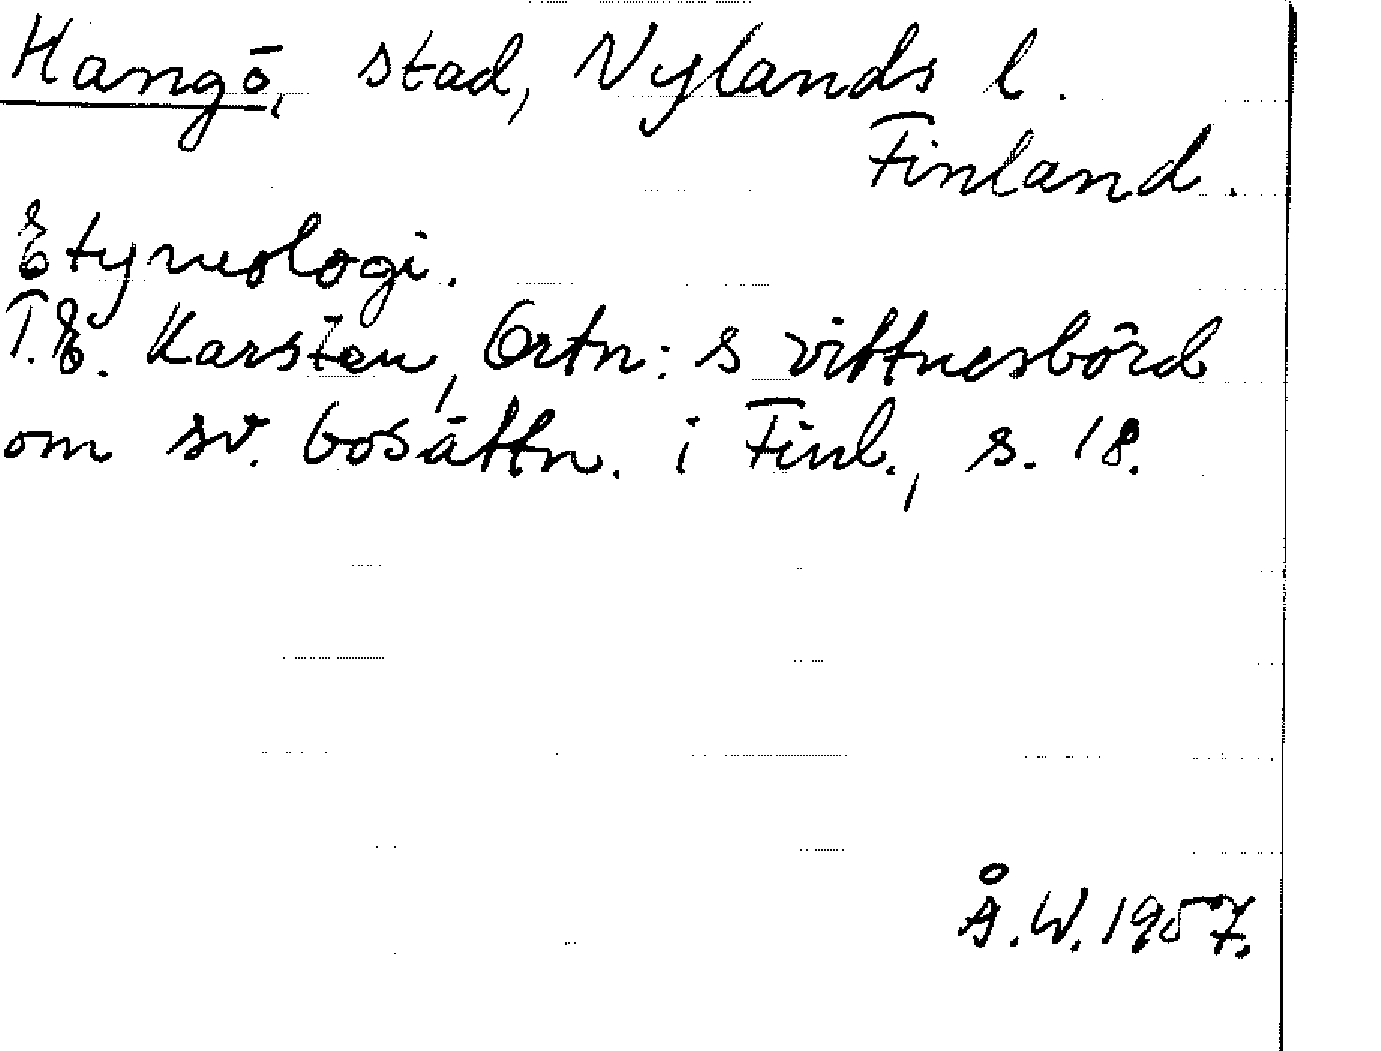 Hangö, stad, Nylands l.
Finland.
Etymologi.
T.E. Karsten, Ortn:s vittnesbörd
om sv. bosättn. i Finl., s. 18.
Å.W. 1957.